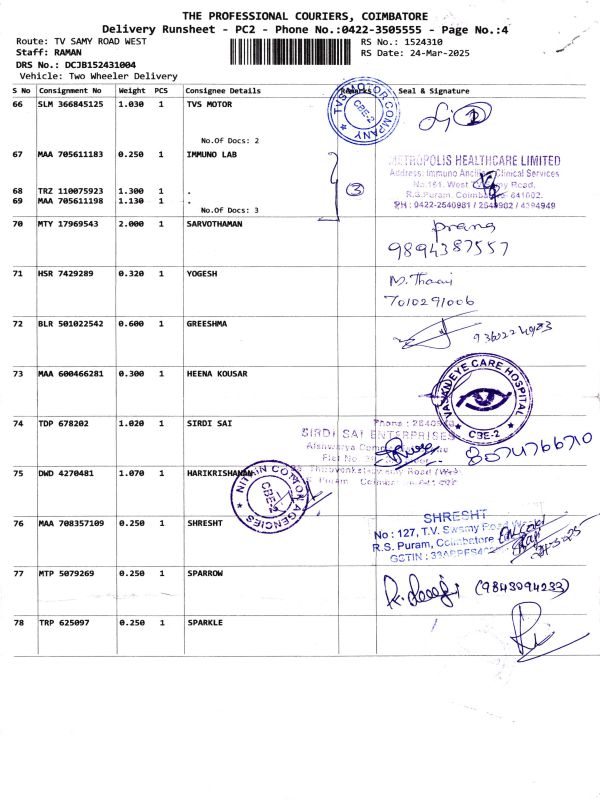 THE PROFESSIONAL COURIERS, COIMBATORE
Delivery Runsheet - PC2 - Phone No.:0422-3505555 - Page No.:4
Route: TV SAMY ROAD WEST
Staff: RAMAN
DRS No.: DCJB152431004
Vehicle: Two Wheeler Delivery
RS No.: 1524310
RS Date: 24-Mar-2025
S No Consignment No Weight PCS Consignee Details Remarks Seal & Signature
66 SLM 366845125 1.030 1 TVS MOTOR
No.Of Docs: 2
TVS MOTOR COMPANY
CBE-2
2
67 MAA 705611183 0.250 1 IMMUNO LAB
68 TRZ 110075923 1.300 1 .
69 MAA 705611198 1.130 1 .
No.Of Docs: 3
3
METROPOLIS HEALTHCARE LIMITED
Address: Immuno Ancilary Clinical Services
No.161, West T.V. Samy Road,
R.S.Puram, Coimbatore 641002.
PH : 0422-2540981 / 2540982 / 4394949
70 MTY 17969543 2.000 1 SARVOTHAMAN
prang
9894387557
71 HSR 7429289 0.320 1 YOGESH
7010291006
72 BLR 501022542 0.600 1 GREESHMA
73 MAA 600466281 0.300 1 HEENA KOUSAR
VASAN EYE CARE HOSPITAL
CBE-2
74 TDP 678202 1.020 1 SIRDI SAI
SIRDI SAI ENTERPRISES
8074766710
75 DWD 4270481 1.070 1 HARIKRISHANAN
NITHIN COTTON AGENCIES
CBE-2
76 MAA 708357109 0.250 1 SHRESHT
SHRESHT
No : 127, T.V. Swamy Road
R.S. Puram, Coimbatore
77 MTP 5079269 0.250 1 SPARROW
(9843094233)
78 TRP 625097 0.250 1 SPARKLE